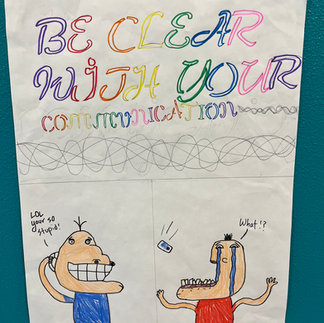 BE CLEAR
WITH YOUR
COMMUNICATION
LOL
your so
stupid!
What!?